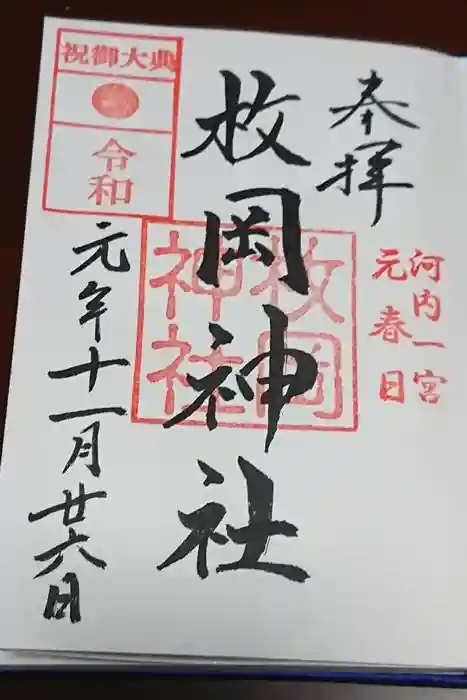 奉拝
河内一宮
元春日
枚岡神社
枚岡
神社
祝御大典
令和
元年十一月廿六日